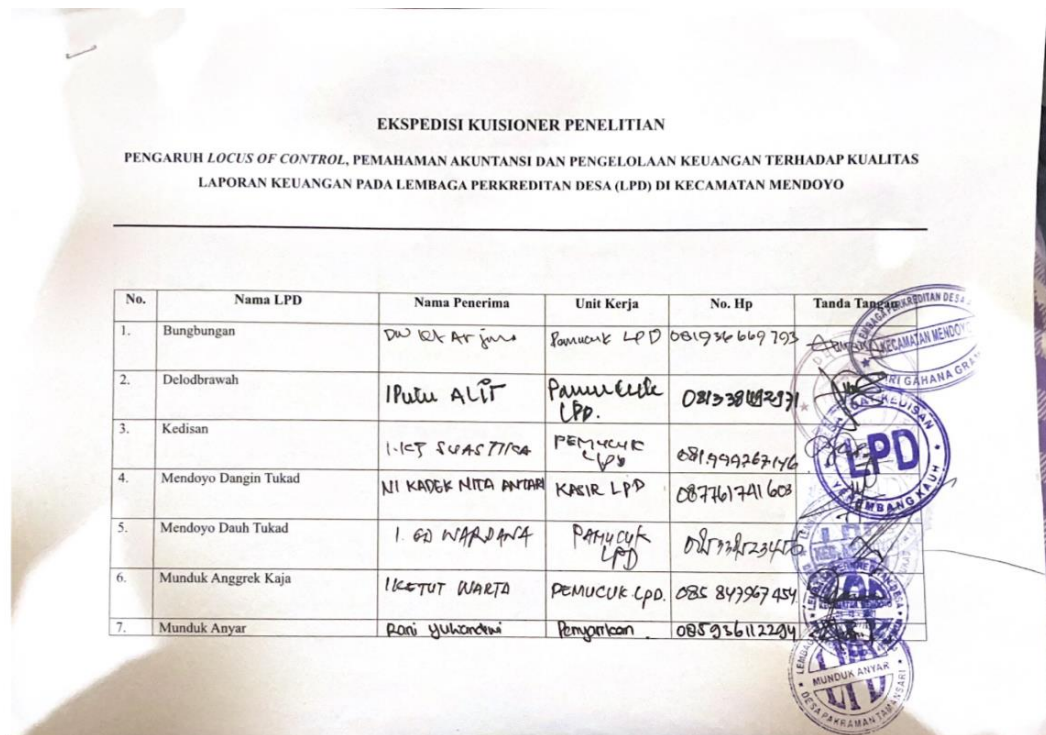 EKSPEDISI KUISIONER PENELITIAN
PENGARUH LOCUS OF CONTROL, PEMAHAMAN AKUNTANSI DAN PENGELOLAAN KEUANGAN TERHADAP KUALITAS
LAPORAN KEUANGAN PADA LEMBAGA PERKREDITAN DESA (LPD) DI KECAMATAN MENDOYO
No. Nama LPD Nama Penerima Unit Kerja No. Hp Tanda Tangan
1. Bungbungan Pamucuk LPD 081936669793
2. Delodbrawah I Putu ALIT Pamucuk LPD.
3. Kedisan I.KT SUASTIKA PEMUCUK LPD 081999267146
4. Mendoyo Dangin Tukad NI KADEK NITA ANTARI KASIR LPD 087761741603
5. Mendoyo Dauh Tukad I. GD WARDANA PAMUCUK LPD
6. Munduk Anggrek Kaja I KETUT WARTA PEMUCUK LPD. 085 847967454
7. Munduk Anyar Rani 085936112294
KECAMATAN MENDOYO
KEDISAN
LPD
YEHEMBANG KAUH
MUNDUK ANYAR
LPD
DESA PAKRAMAN TAMANSARI